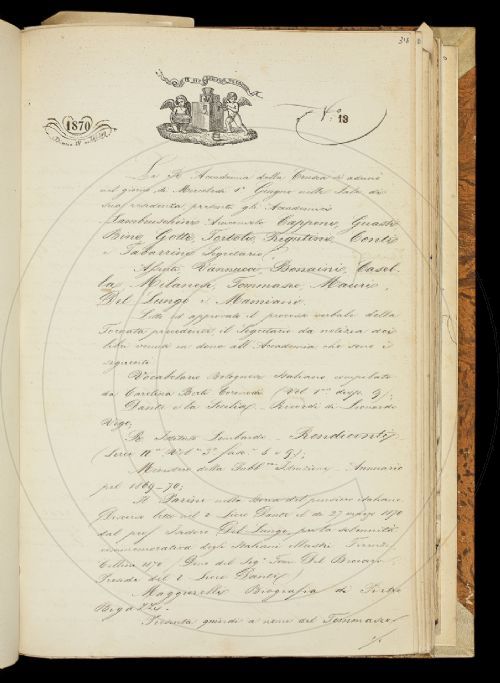 318
1870
N.º 19
La R. Accademia della Crusca si adunò
nel giorno di Mercoledì 1º Giugno nella Sala di
sua residenza, presenti gli Accademici
Lambruschini Arciconsolo, Capponi, Guasti
Bini, Gotti, Tortoli, Rigutini, Conti
e Tabarrini Segretario.
Assenti, Vannucci, Bonaini, Casel-
la, Milanesi, Tommaseo, Mauri,
Del Lungo e Mamiani.
Letto ed approvato il processo verbale della
Tornata precedente, il Segretario dà notizia dei
libri venuti in dono all'Accademia che sono i
seguenti:
Vocabolario Bolognese Italiano compilato
da Carolina Coronedi Berti (Vol 1º disp. 9)
Dante e la Sicilia - Ricordi di Leonardo
Vigo,
R. Istituto Lombardo - Rendiconti
(Serie IIª Vol 3º fasc. 8 e 9);
Ministero della Pubb. Istruzione - Annuario
pel 1869-70;
Il Parini nella storia del pensiero italiano
Discorso letto nel R. Liceo Dante il dì 27 marzo 1870
dal prof Isidoro Del Lungo per la solennità
commemorativa degli Italiani illustri. Firenze
Cellini 1870 (Dono del Sig.
Preside del R. Liceo Dante)
Biografia di
Presenta quindi a nome del Tommaseo